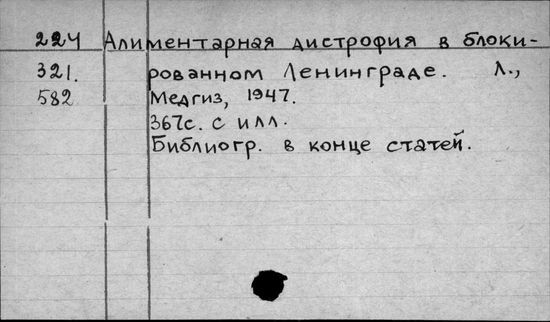 224 Алиментарная дистрофия в блоки-
321. рованном Ленинграде. Л.,
582 Медгиз, 1947.
367с. с илл.
Библиогр. в конце статей.